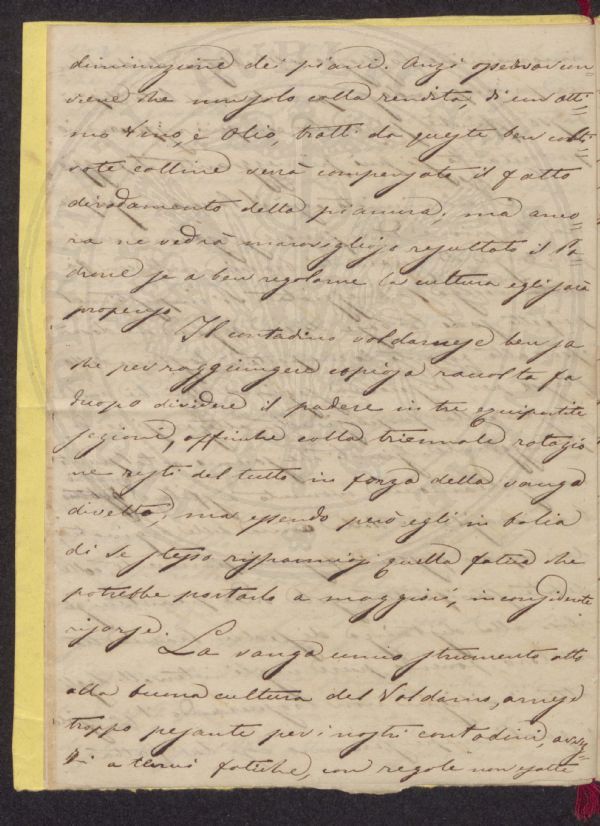 diminuzione dei piani. Anzi osservar con=
viene che non solo colla rendita, di un otti=
mo Vino, e Olio, tratti da queste ben colti=
vate colline verrà compensato il fatto
diradamento della pianura, ma anco=
ra ne vedrà maraviglioso resultato il Pa=
drone se a ben regolarne la cultura egli sarà
propenso
Il contadino valdarnese ben sa
che per raggiungere copiosa raccolta fa
duopo dividere il podere in tre equipartite
segioni, affinche colla triennale rotazio
ne resti del tutto in forza della vanga
divelto; ma essendo però egli in balia
di se stesso risparmiasi quella fatica che
potrebbe portarlo a maggiori, in considerate
risorse.
La vanga unico strumento atto
alla buona cultura del Valdarno, arnese
troppo pesante per i nostri contadini, avvez=
zi a tenui fatiche, con regole non esatte